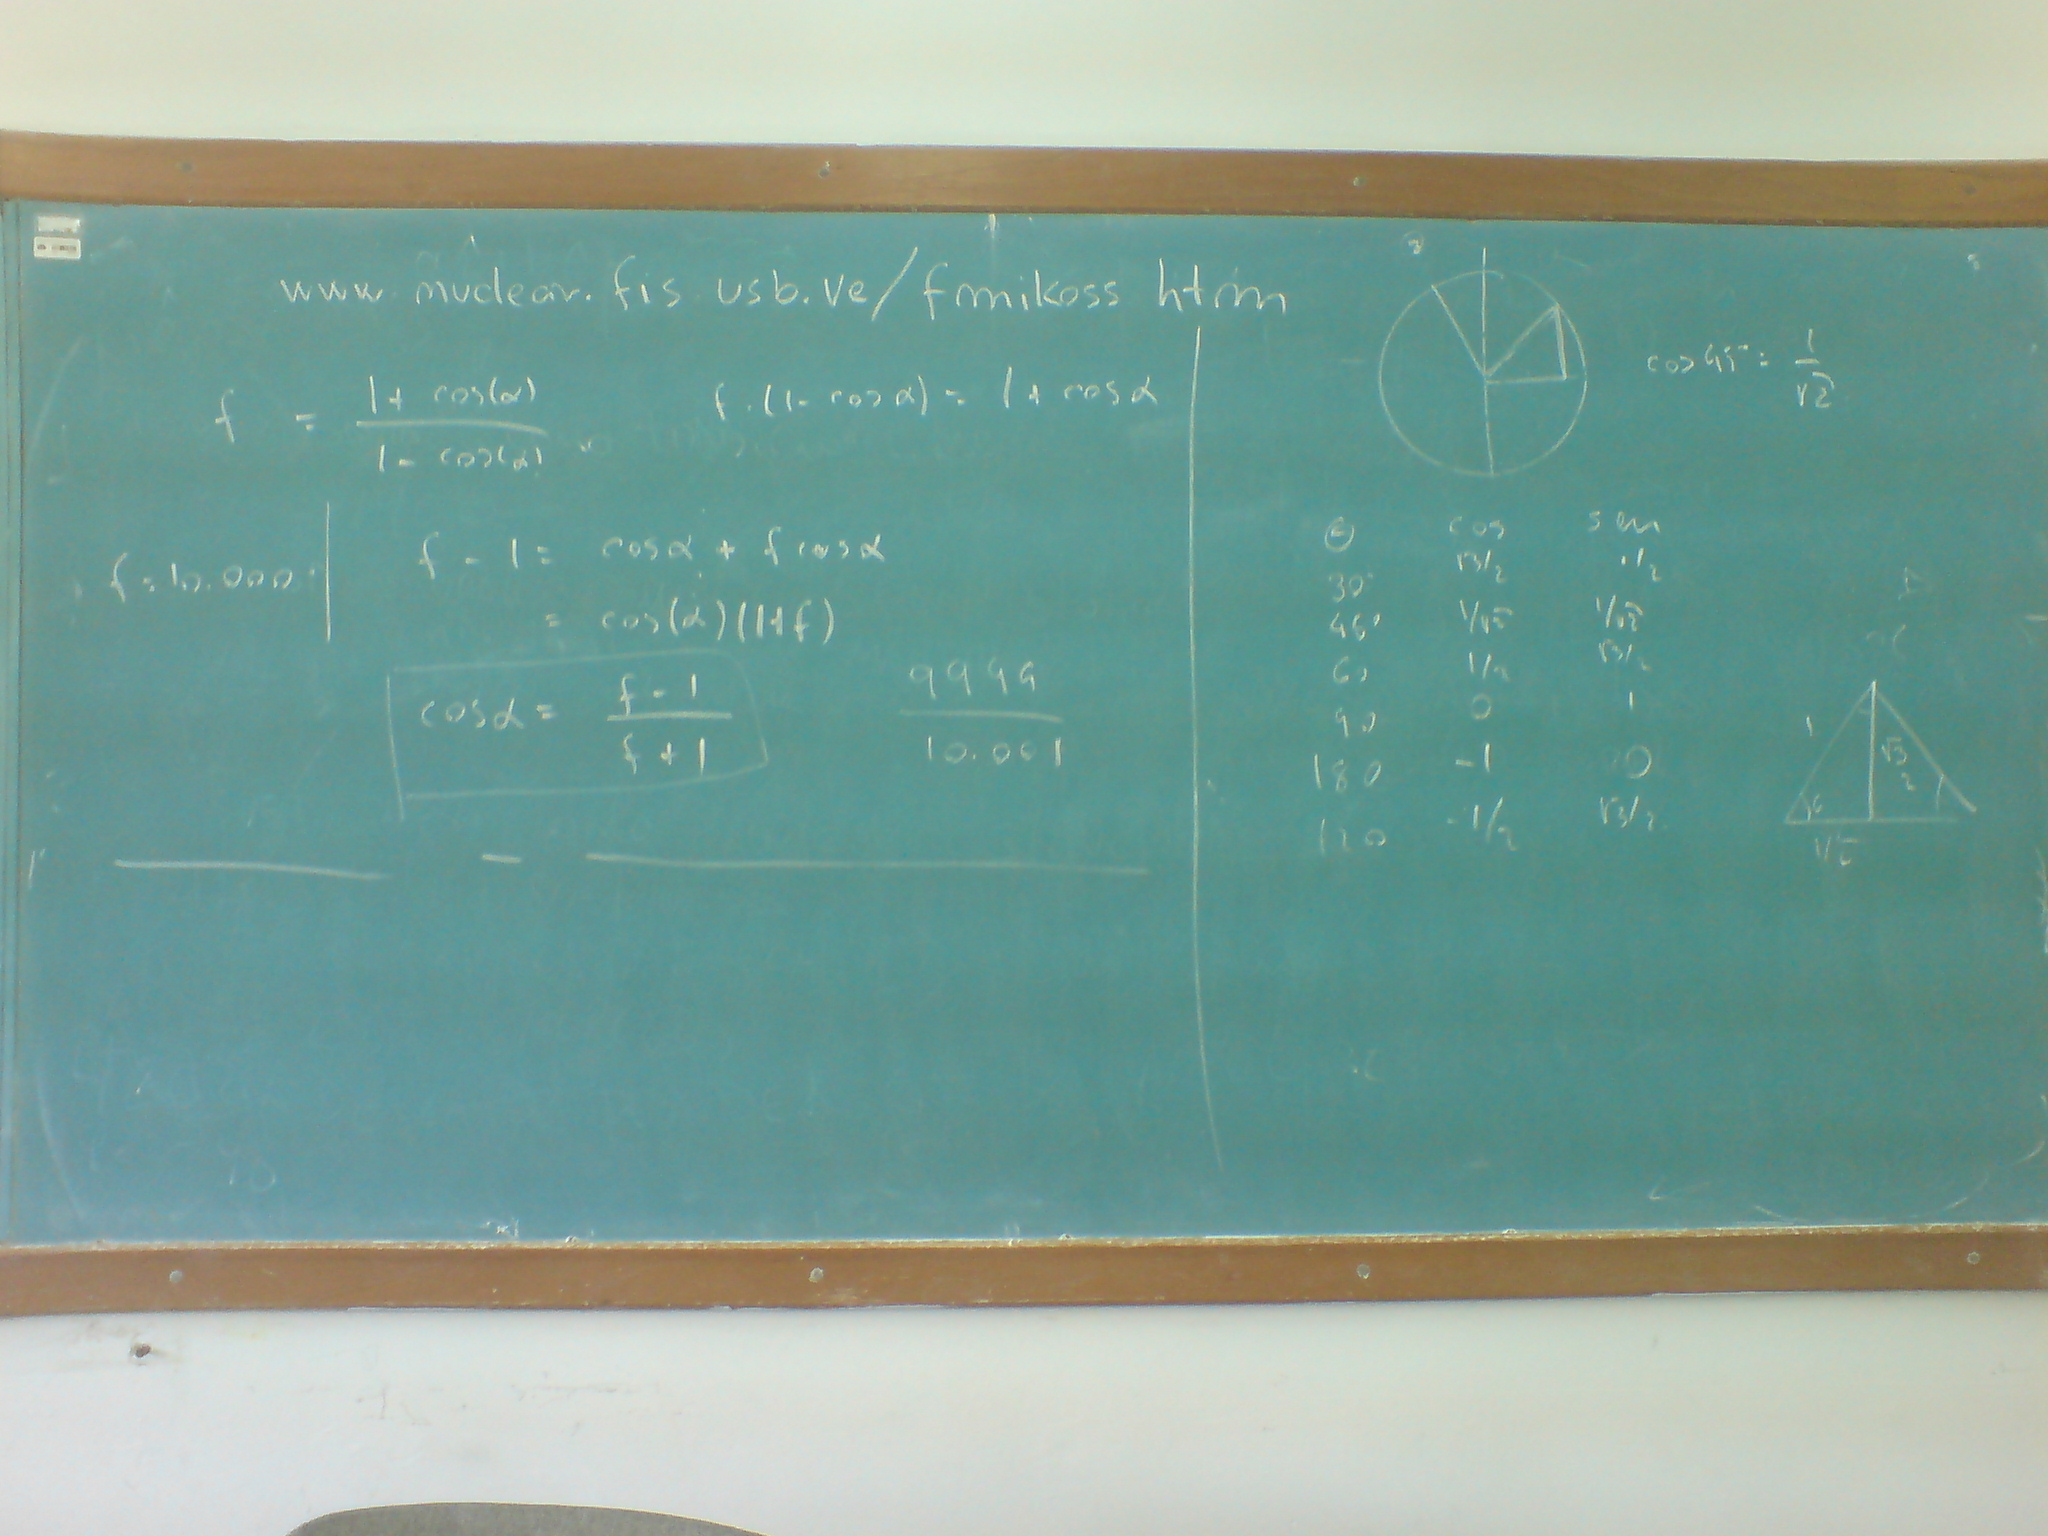 www.nuclear.fis.usb.ve/fmikoss htm
f = 1+ cos(α) / 1- cos(α)
f.(1- cosα) = 1+ cosα
f=10.000
f - 1 = cosα + f cosα
= cos(α)(1+f)
cosα = f-1 / f+1
9999 / 10.001
cos 45° = 1/√2
Θ cos sen
30° √3/2 1/2
45° 1/√2 1/√2
60 1/2 √3/2
90 0 1
180 -1 0
120 -1/2 √3/2
1
√3/2